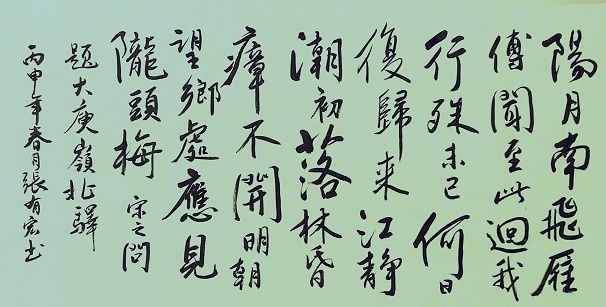 陽月南飛雁
傳聞至此迴我
行殊未已何日
復歸来江静
潮初落林昏
瘴不開明朝
望鄉處應見
隴頭梅宋之問
题大庾嶺北驛
丙申年春月張有宏书